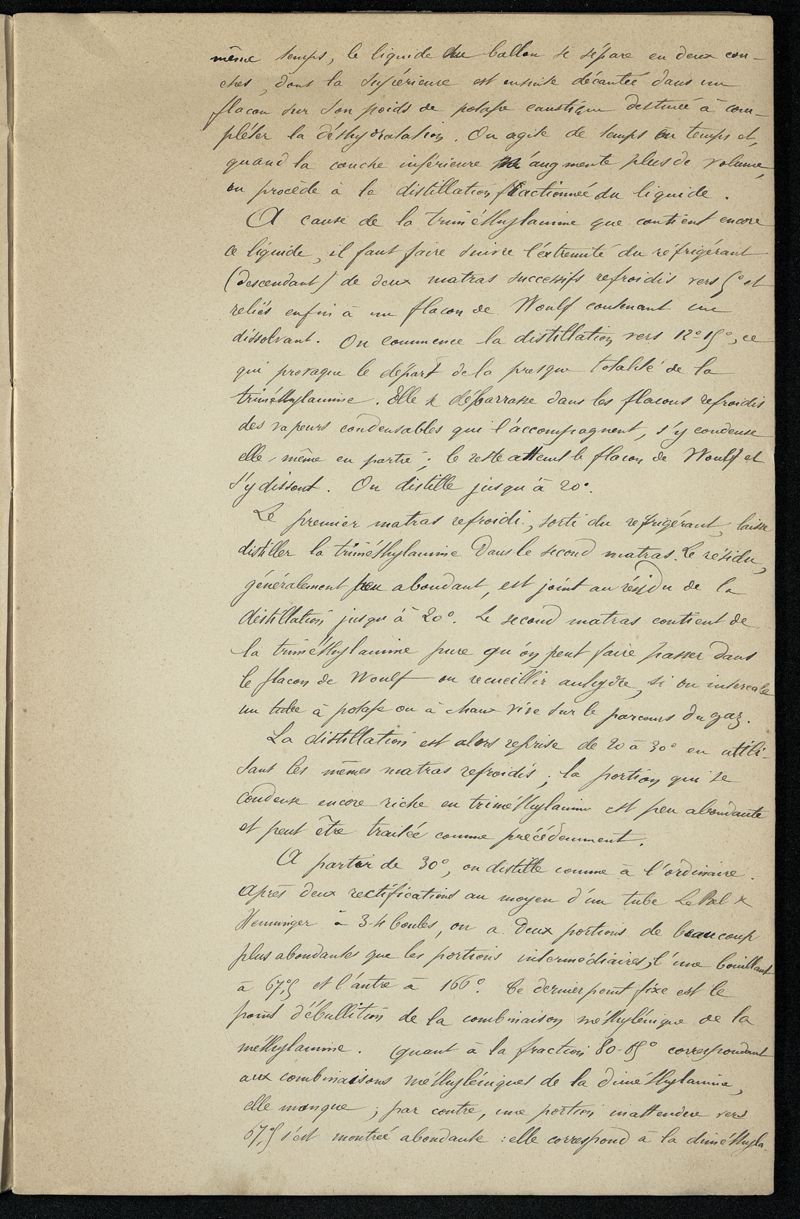 même temps, le liquide du ballon se sépare en deux cou-
ches, dont la supérieure est ensuite décantée dans un
flacon sur son poids de potasse caustique destinée à com-
pléter la déshydratation. On agite de temps en temps et,
quand la couche inférieure n'augmente plus de volume,
on procède à la distillation fractionnée du liquide.
A cause de la triméthylamine que contient encore
ce liquide, il faut faire suivre l'extrémité du réfrigérant
(descendant) de deux matras successifs refroidis vers 5° et
reliés enfin à un flacon de Woulf contenant un
dissolvant. On commence la distillation vers 12°-15°, ce
qui provoque le départ de la presque totalité de la
triméthylamine. Elle se débarrasse dans les flacons refroidis
des vapeurs condensables qui l'accompagnent, s'y condense
elle-même en partie; le reste atteint le flacon de Woulf et
s'y dissout. On distille jusqu'à 20°.
Le premier matras refroidi, sorti du réfrigérant, laisse
distiller la triméthylamine dans le second matras. Le résidu,
généralement peu abondant, est joint au résidu de la
distillation jusqu'à 20°. Le second matras contient de
la triméthylamine pure qu'on peut faire passer dans
le flacon de Woulf ou recueillir anhydre, si on intercale
un tube à potasse ou à chaux vive sur le parcours du gaz.
La distillation est alors reprise de 20 à 30° en utili-
sant les mêmes matras refroidis; la portion qui se
condense encore riche en triméthylamine est peu abondante
et peut être traitée comme précédemment.
A partir de 30°, on distille comme à l'ordinaire.
Après deux rectifications au moyen d'un tube Le Bel &
Henninger à 3-4 boules, on a deux portions de beaucoup
plus abondantes que les portions intermédiaires, l'une bouillant
à 67°,5 et l'autre à 166°. Ce dernier point fixe est le
point d'ébullition de la combinaison méthylénique de la
méthylamine. Quant à la fraction 80-85° correspondant
aux combinaisons méthyléniques de la diméthylamine,
elle manque; par contre, une portion inattendue vers
67°,5 s'est montrée abondante: elle correspond à la diméthyla